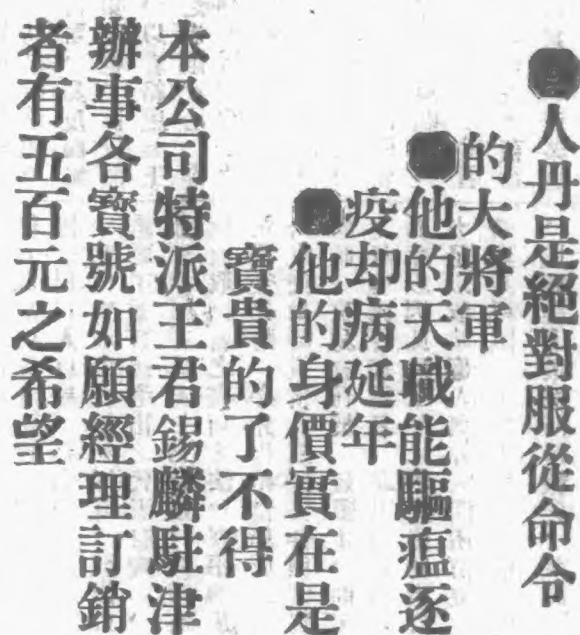 ●人丹是絕對服從命令
的大將軍
●他的天職能驅瘟逐
疫却病延年
●他的身價實在是
寶貴的了不得
本公司特派王君錫麟駐津
辦事各寶號如願經理訂銷
者有五百元之希望